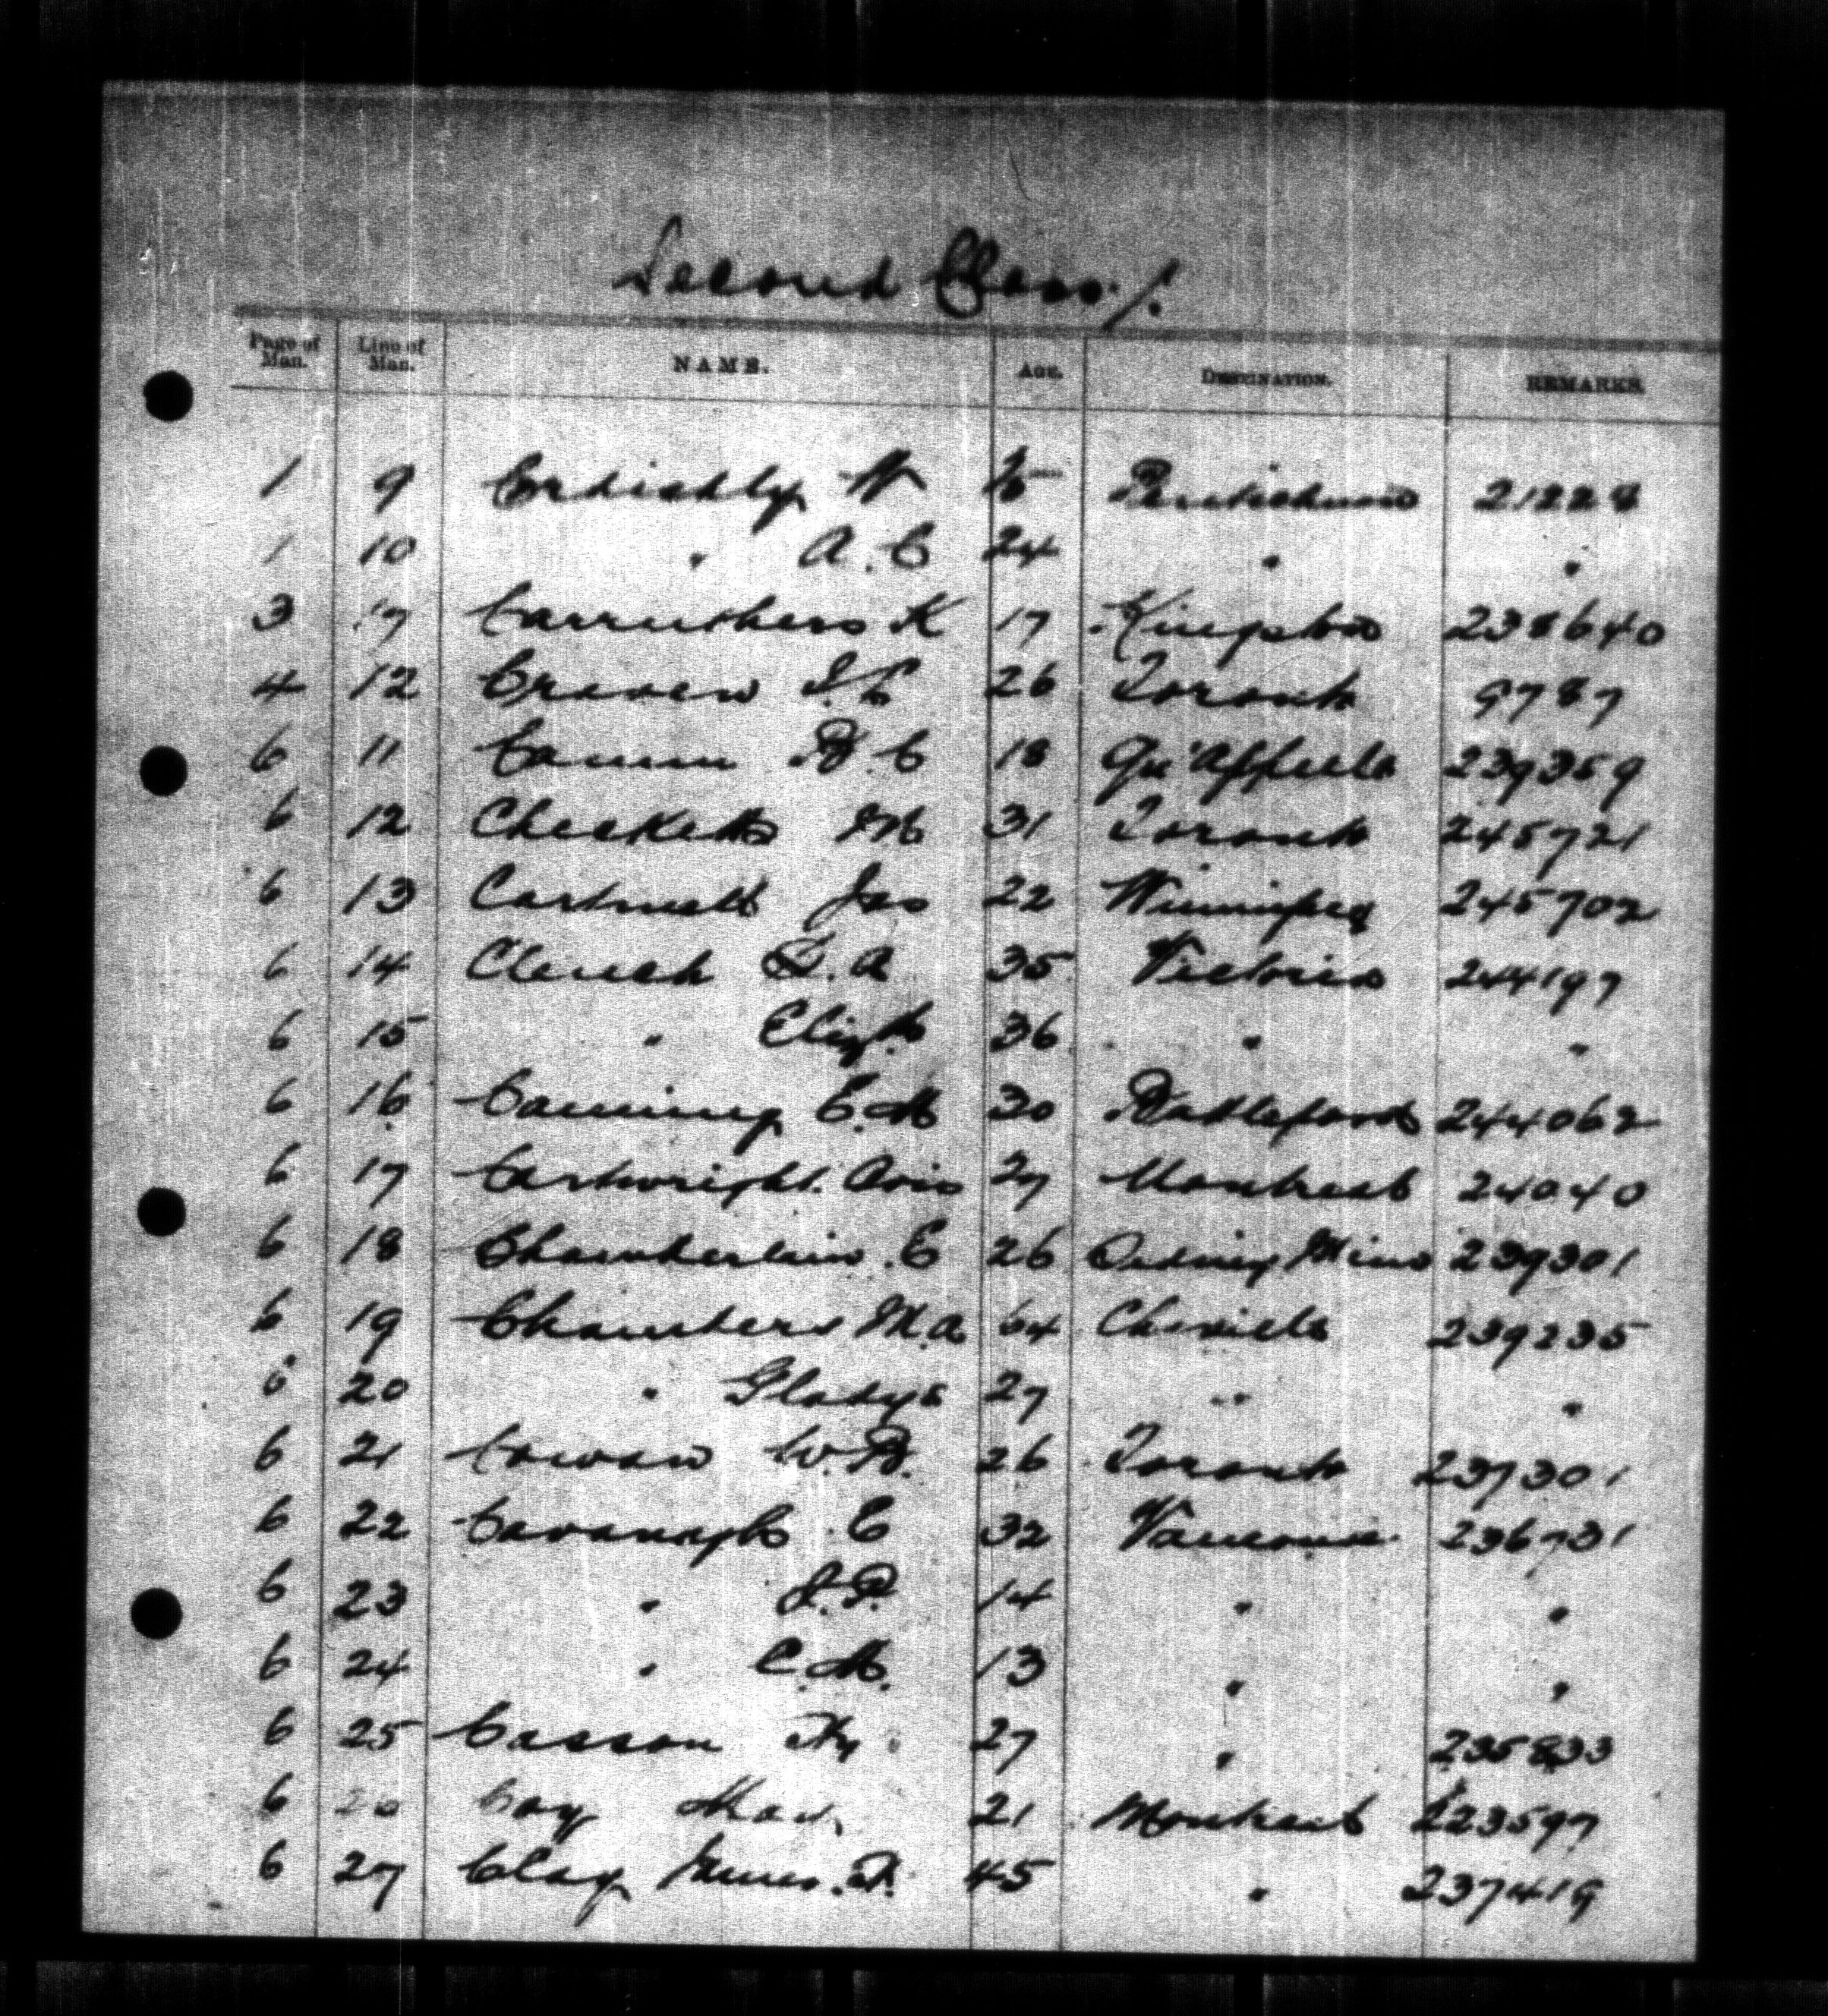 Second Class /.
Page of Man. Line of Man. NAME. AGE. DESTINATION. REMARKS
1 9 N 21228
1 10 " A.C 24 " "
3 17 Carruthers K 17 Kingston 238640
4 12 Craven 26 Toronto 9787
6 11 B.C 18 Qu'Appelle 239359
6 12 Checketts 31 Toronto 245721
6 13 Cartmell Jas 22 Winnipeg 245702
6 14 Church D.A 35 Victoria 244197
6 15 " Elizth 36 " "
6 16 Canning E.M 30 Battleford 244062
6 17 Cartwright Avis 27 Montreal 24040
6 18 Chamberlain E 26 Sidney Mines 239301
6 19 Chambers M.A 64 239235
6 20 " Gladys 27 " "
6 21 Cowan W.B. 26 Toronto 237301
6 22 Cavanagh E 32 Vancouver 236731
6 23 " 14 " "
6 24 " C.M. 13 " "
6 25 Casson Hy 27 " 235833
6 26 Coy 21 Montreal 223597
6 27 Clay James 45 " 237419